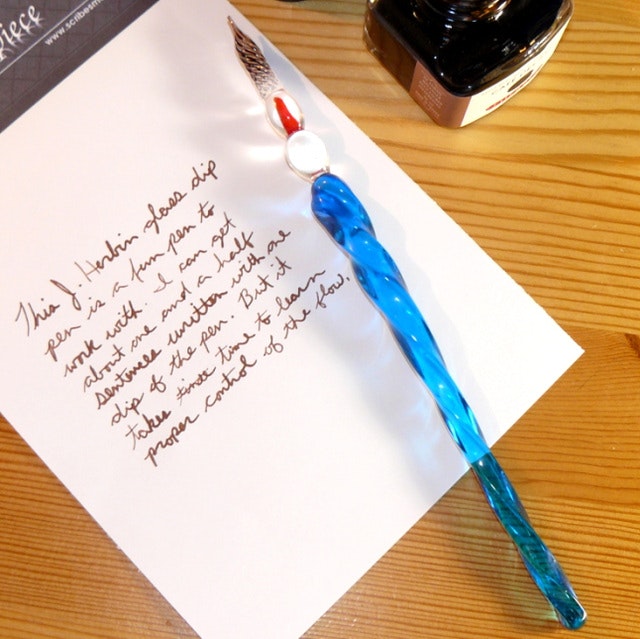 iece
www.scribesm
This J. Herbin glass dip
pen is a fun pen to
work with. I can get
about one and a half
sentences written with one
dip of the pen. But it
takes time to learn
proper control of the flow.